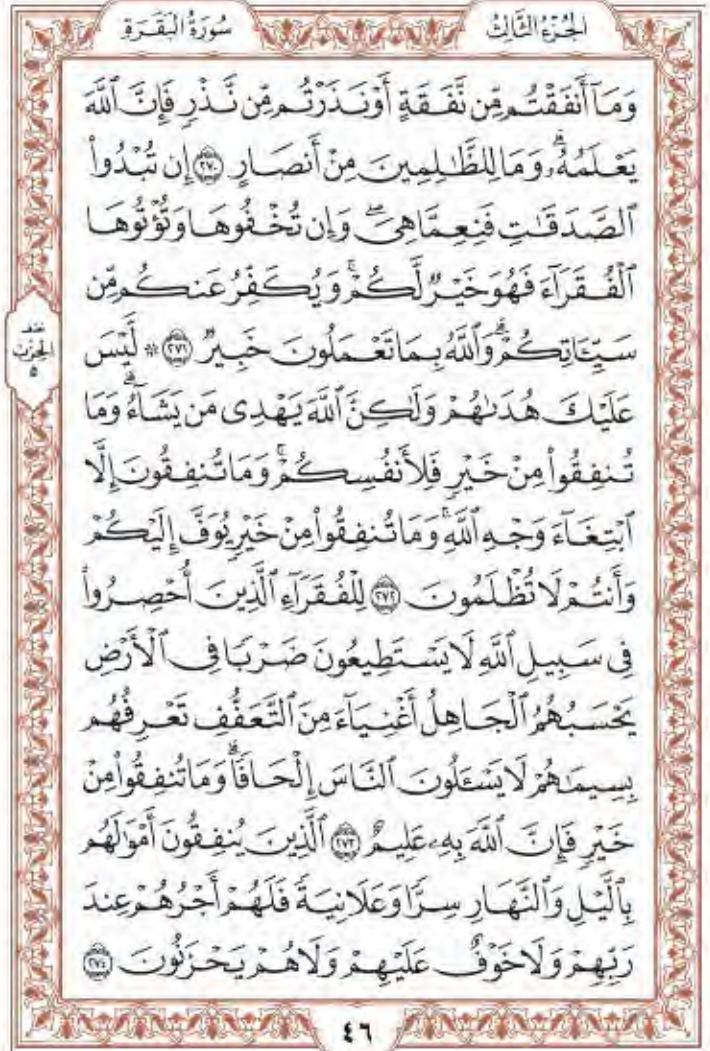 الجُزْءُ الثَّالِثُ
سُورَةُ الْبَقَرَةِ
وَمَآ أَنفَقْتُم مِّن نَّفَقَةٍ أَوْ نَذَرْتُم مِّن نَّذْرٍ فَإِنَّ ٱللَّهَ
يَعْلَمُهُۥۗ وَمَا لِلظَّـٰلِمِينَ مِنْ أَنصَارٍ ٢٧٠ إِن تُبْدُوا۟
ٱلصَّدَقَـٰتِ فَنِعِمَّا هِىَۖ وَإِن تُخْفُوهَا وَتُؤْتُوهَا
ٱلْفُقَرَآءَ فَهُوَ خَيْرٌ لَّكُمْۚ وَيُكَفِّرُ عَنكُم مِّن
سَيِّـَٔاتِكُمْۗ وَٱللَّهُ بِمَا تَعْمَلُونَ خَبِيرٌ ٢٧١ ۞ لَّيْسَ
عَلَيْكَ هُدَىٰهُمْ وَلَـٰكِنَّ ٱللَّهَ يَهْدِى مَن يَشَآءُۗ وَمَا
تُنفِقُوا۟ مِنْ خَيْرٍ فَلِأَنفُسِكُمْۚ وَمَا تُنفِقُونَ إِلَّا
ٱبْتِغَآءَ وَجْهِ ٱللَّهِۚ وَمَا تُنفِقُوا۟ مِنْ خَيْرٍ يُوَفَّ إِلَيْكُمْ
وَأَنتُمْ لَا تُظْلَمُونَ ٢٧٢ لِلْفُقَرَآءِ ٱلَّذِينَ أُحْصِرُوا۟
فِى سَبِيلِ ٱللَّهِ لَا يَسْتَطِيعُونَ ضَرْبًا فِى ٱلْأَرْضِ
يَحْسَبُهُمُ ٱلْجَاهِلُ أَغْنِيَآءَ مِنَ ٱلتَّعَفُّفِ تَعْرِفُهُم
بِسِيمَـٰهُمْ لَا يَسْـَٔلُونَ ٱلنَّاسَ إِلْحَافًاۗ وَمَا تُنفِقُوا۟ مِنْ
خَيْرٍ فَإِنَّ ٱللَّهَ بِهِۦ عَلِيمٌ ٢٧٣ ٱلَّذِينَ يُنفِقُونَ أَمْوَٰلَهُم
بِٱلَّيْلِ وَٱلنَّهَارِ سِرًّا وَعَلَانِيَةً فَلَهُمْ أَجْرُهُمْ عِندَ
رَبِّهِمْ وَلَا خَوْفٌ عَلَيْهِمْ وَلَا هُمْ يَحْزَنُونَ ٢٧٤
نصف
الحزب
٥
٤٦